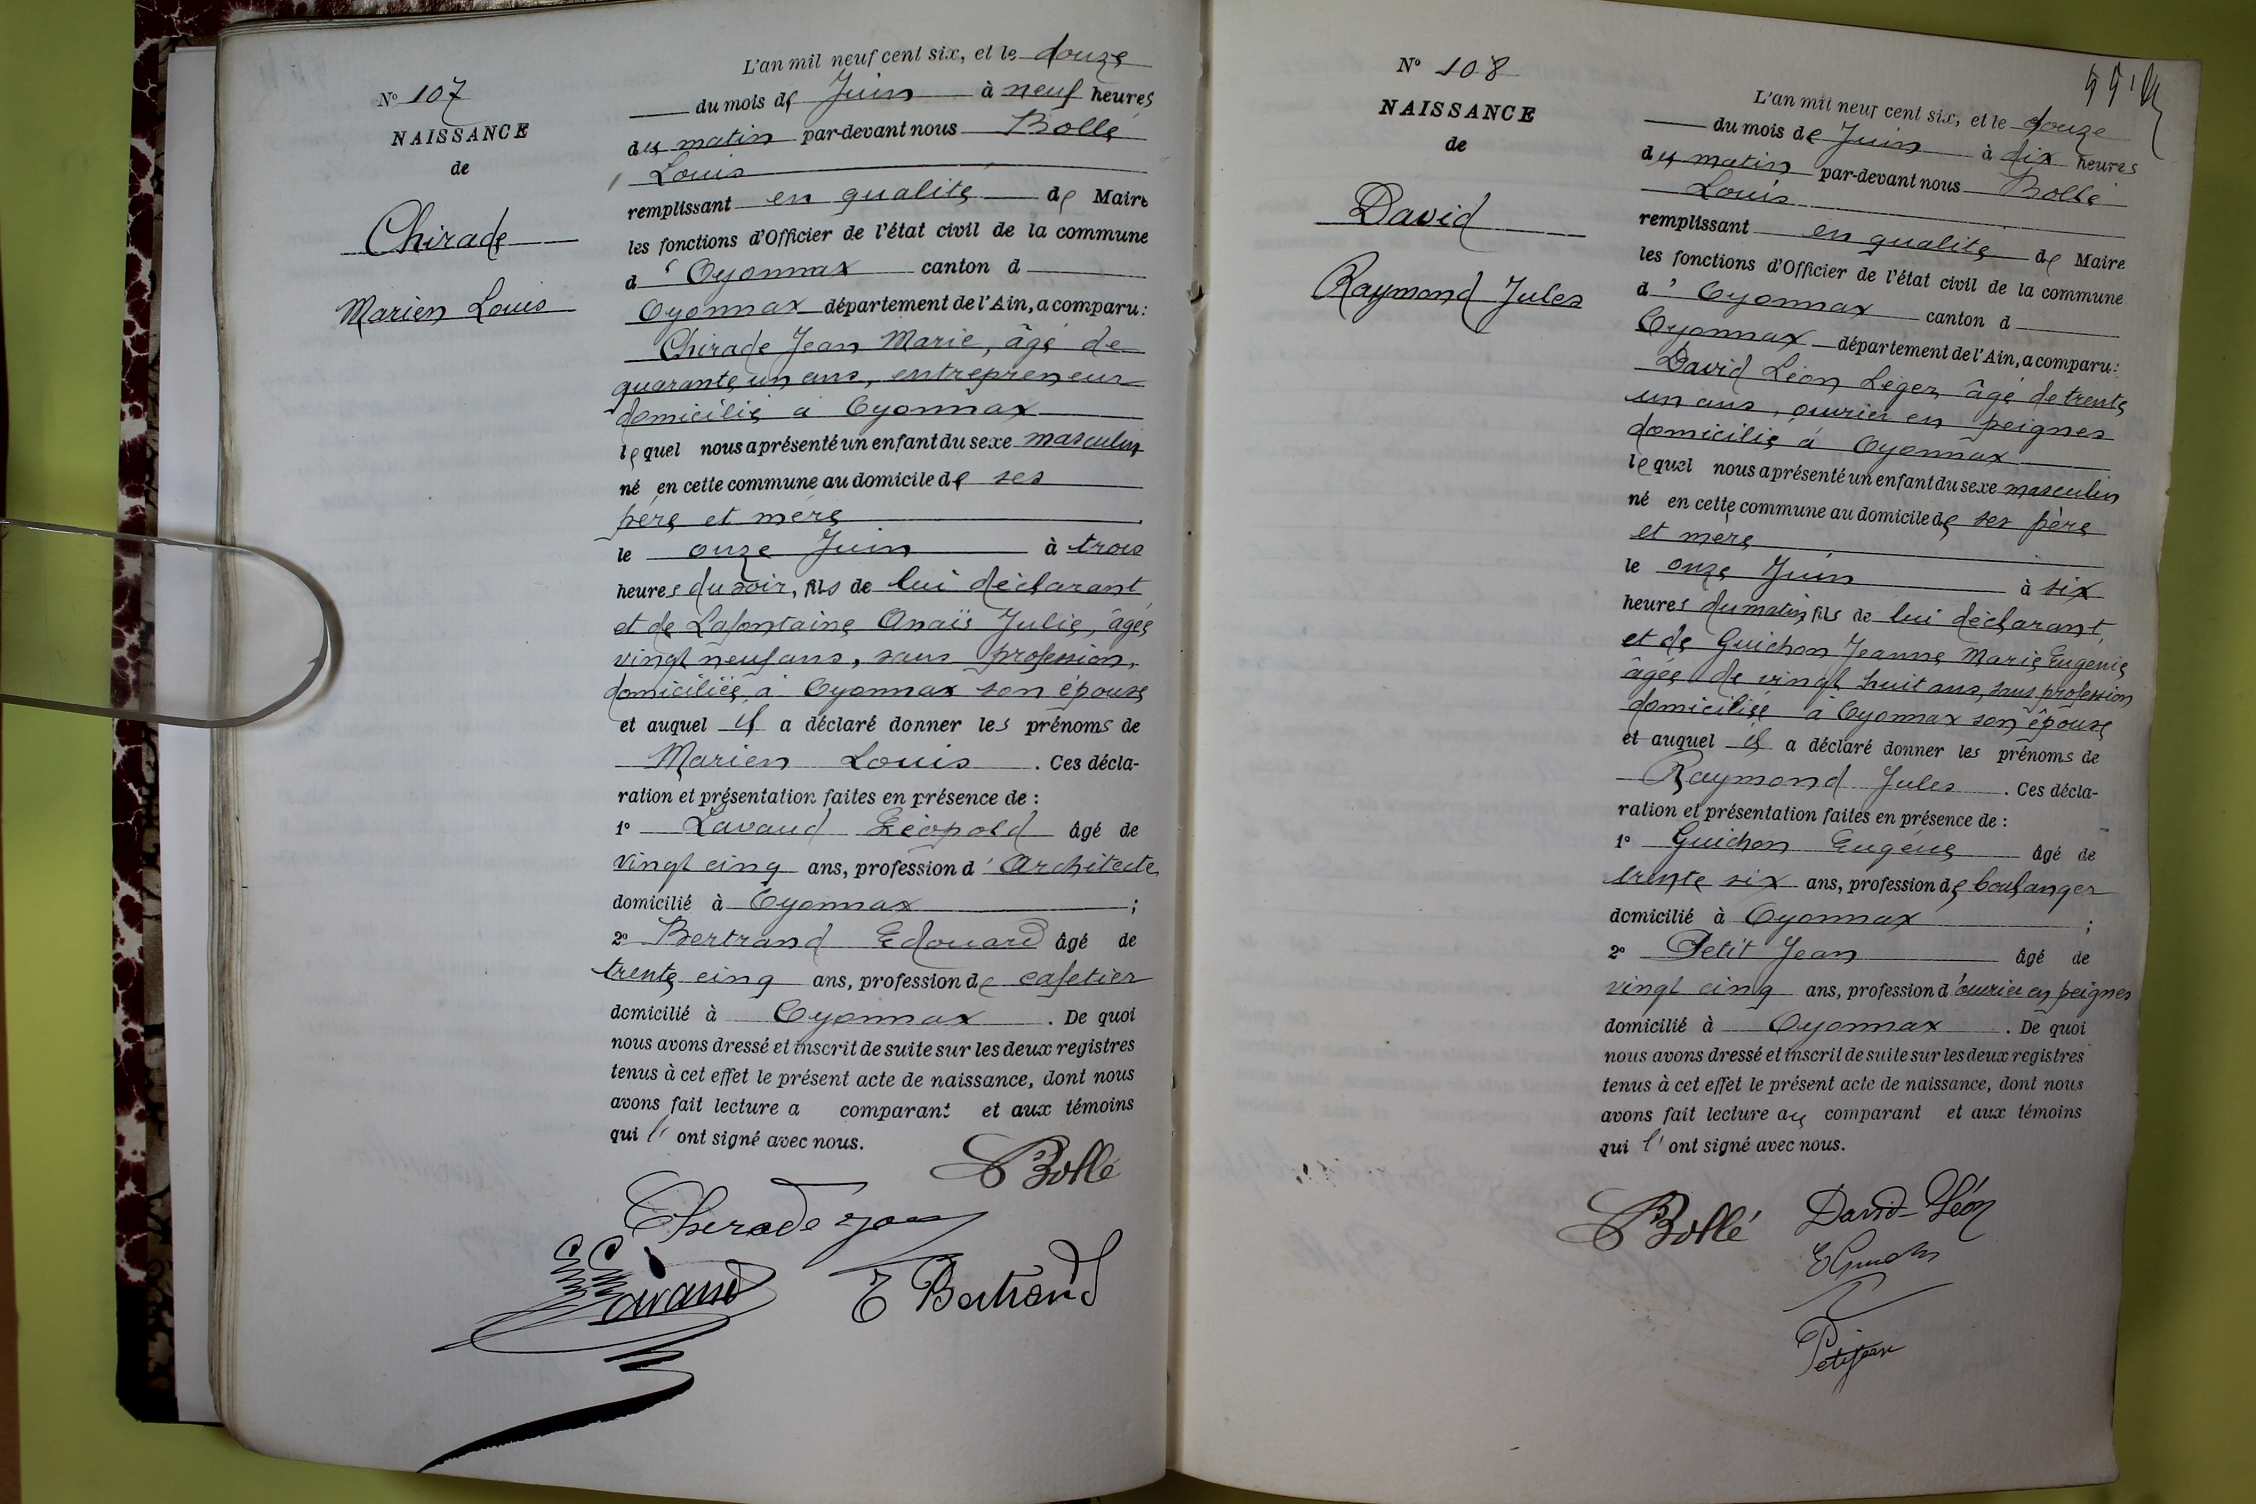 N° 107
NAISSANCE
de
Chirade
Marien Louis
L'an mil neuf cent six, et le douze
du mois de Juin à neuf heures
du matin par-devant nous Bollé
Louis
remplissant en qualité de Maire
les fonctions d'Officier de l'état civil de la commune
d'Oyonnax canton d
Oyonnax département de l'Ain, a comparu:
Chirade Jean Marie, âgé de
quarante un ans, entrepreneur
domicilié à Oyonnax
lequel nous a présenté un enfant du sexe masculin
né en cette commune au domicile de ses
père et mère
le onze Juin à trois
heures du soir, fils de lui déclarant
et de Lafontaine Anaïs Julie, âgée
vingt neuf ans, sans profession,
domiciliée à Oyonnax son épouse
et auquel il a déclaré donner les prénoms de
Marien Louis . Ces décla-
ration et présentation faites en présence de :
1° Lavaud Léopold âgé de
vingt cinq ans, profession d'Architecte
domicilié à Oyonnax ;
2° Bertrand Edouard âgé de
trente cinq ans, profession de cafetier
domicilié à Oyonnax . De quoi
nous avons dressé et inscrit de suite sur les deux registres
tenus à cet effet le présent acte de naissance, dont nous
avons fait lecture a comparant et aux témoins
qui l'ont signé avec nous.
Bollé
Chirade Jean
Lavaud
E Bertrand
N° 108
NAISSANCE
de
David
Raymond Jules
L'an mil neuf cent six, et le douze
du mois de Juin à dix heures
du matin par-devant nous Bollé
Louis
remplissant en qualité de Maire
les fonctions d'Officier de l'état civil de la commune
d'Oyonnax canton d
Oyonnax département de l'Ain, a comparu:
David Léon Léger, âgé de trente
un ans, ouvrier en peignes
domicilié à Oyonnax
lequel nous a présenté un enfant du sexe masculin
né en cette commune au domicile de ses père
et mère
le onze Juin à six
heures du matin, fils de lui déclarant,
et de Guichon Jeanne Marie Eugénie
âgée de vingt huit ans, sans profession
domiciliée à Oyonnax son épouse
et auquel il a déclaré donner les prénoms de
Raymond Jules . Ces décla-
ration et présentation faites en présence de :
1° Guichon Eugène âgé de
trente six ans, profession de boulanger
domicilié à Oyonnax ;
2° Petit Jean âgé de
vingt cinq ans, profession d'ouvrier en peignes
domicilié à Oyonnax . De quoi
nous avons dressé et inscrit de suite sur les deux registres
tenus à cet effet le présent acte de naissance, dont nous
avons fait lecture au comparant et aux témoins
qui l'ont signé avec nous.
Bollé
David Léon
E Guichon
Petit Jean